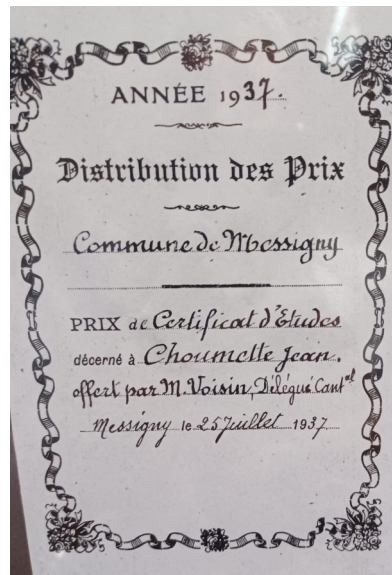 ANNÉE 1937.
Distribution des Prix
Commune de Messigny
PRIX de Certificat d'Etudes
décerné à Choumette Jean.
offert par M. Voisin, Délégué Cant^al
Messigny le 25 Juillet 1937